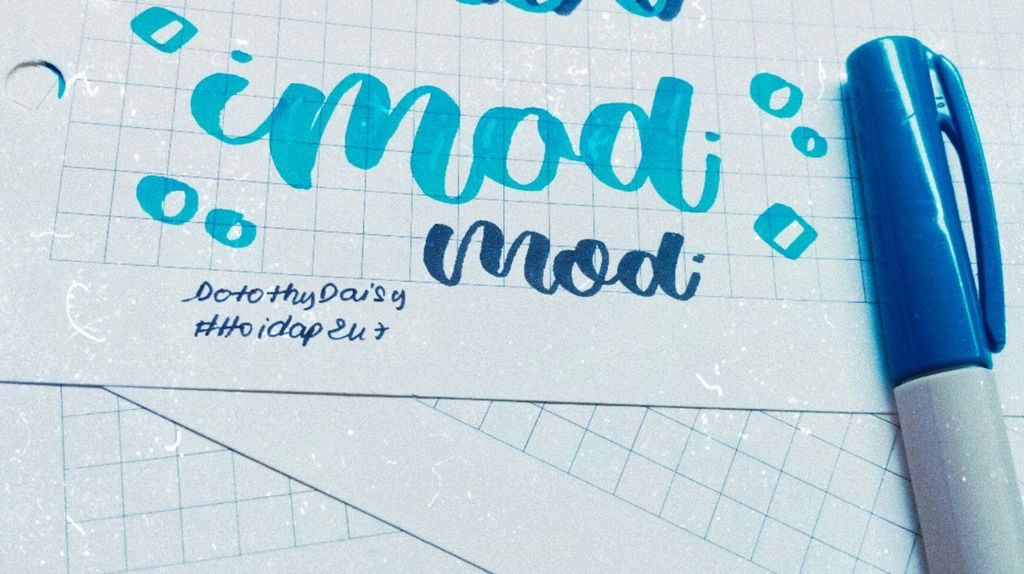 imodi
modi
DorothyDaisy
#Hoidap247